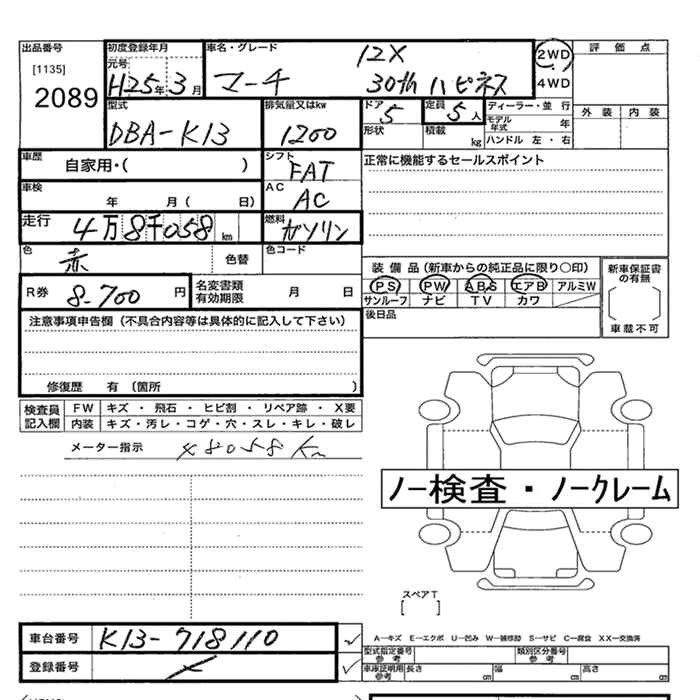 出品番号 初度登録年月 車名・グレード 12X 2WD 評価点
[1135] 元号
2089 H25年3月 マーチ 30th ハピネス 4WD
型式 排気量又はkw ドア 5 定員 5人 ディーラー・並行 外装 内装
DBA-K13 1200 形状 積載 kg モデル年式 年
ハンドル 左・右
車歴 自家用・( ) シフト FAT 正常に機能するセールスポイント
車検 年 月( 日) AC AC
走行 4万8千058km 燃料 ガソリン
色 赤 色替 色コード
装備品(新車からの純正品に限り〇印) 新車保証書の有無
R券 8-700円 名変書類有効期限 月 日 PS PW ABS エアB アルミW
サンルーフ ナビ TV カワ
注意事項申告欄(不具合内容等は具体的に記入して下さい) 後日品 車載不可
修復歴 有(箇所 )
検査員記入欄 FW キズ・飛石・ヒビ割・リペア跡・X要
内装 キズ・汚レ・コゲ・穴・スレ・キレ・破レ
メーター指示 48058Km
ノー検査・ノークレーム
スペアT
[ ]
車台番号 K13-718110 A-キズ E-エクボ U-凹み W-補修跡 S-サビ C-腐食 XX-交換済
型式指定番号 参考 類別区分番号 参考
登録番号 車庫証明用 参考 長さ cm 幅 cm 高さ cm